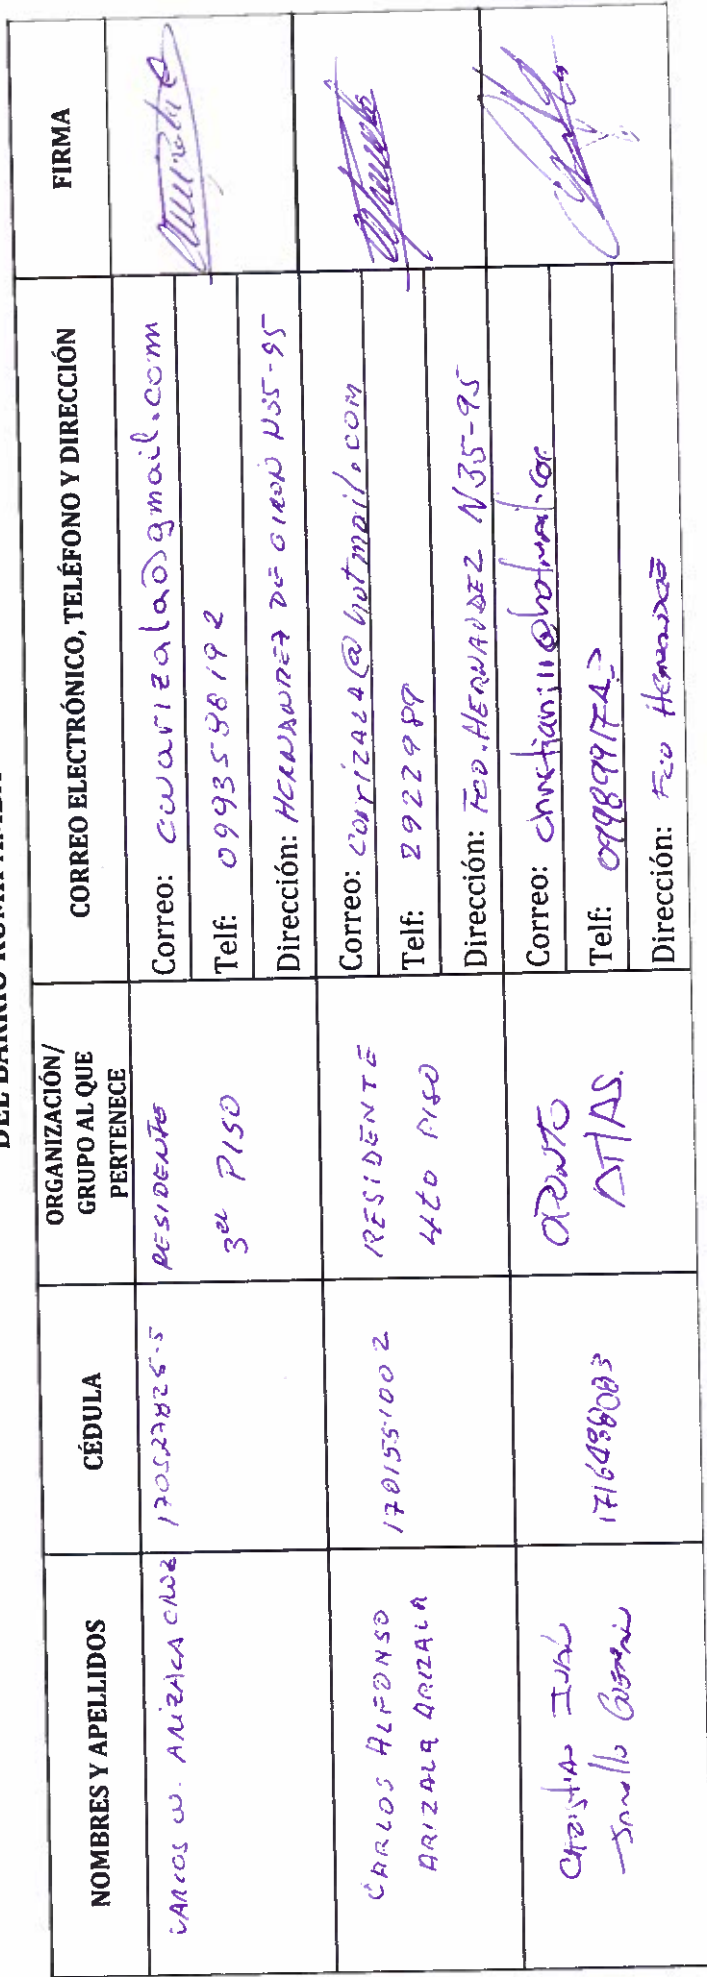 NOMBRES Y APELLIDOS
CÉDULA
ORGANIZACIÓN/
GRUPO AL QUE
PERTENECE
CORREO ELECTRÓNICO, TELÉFONO Y DIRECCIÓN
FIRMA
CARLOS W. ARIZALA CRUZ
170527825-5
RESIDENTE
3er PISO
Correo: cwarizala@gmail.com
Telf: 0993598192
Dirección: HERNANDEZ DE GIRON N35-95
CARLOS ALFONSO
ARIZALA ARIZALA
1701551002
RESIDENTE
4to PISO
Correo: carrizala@hotmail.com
Telf: 2922989
Dirección: FCO. HERNANDEZ N35-95
CHRISTIAN IVÁN
1716498083
Correo:
Telf:
Dirección: Fco Hernandez